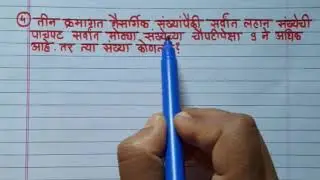 ④ तीन क्रमागत नैसर्गिक संख्यांपैकी सर्वात लहान संख्येची
पाचपट सर्वात मोठ्या संख्येच्या चौपटीपेक्षा 9 ने अधिक
आहे. तर त्या संख्या कोणत्या?